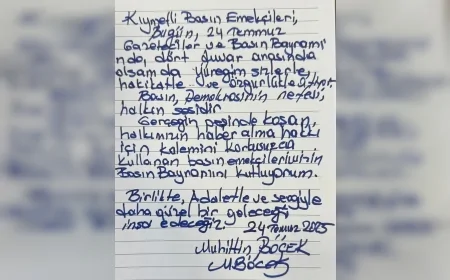 Kıymetli Basın Emekçileri,
Bugün, 24 Temmuz
Gazeteciler ve Basın Bayramı
nda, dört duvar arasında
olsam da yüreğim sizlerle,
hakikatle ve özgürlükle
Basın, Demokrasinin nefesi,
halkın sesidir
Gerçeğin peşinde koşan,
halkımızın haber alma hakkı
için kalemini korkusuzca
kullanan basın emekçilerimizin
Basın Bayramını kutluyorum.
Birlikte, Adaletle ve sevgiyle
daha güzel bir geleceği
inşa edeceğiz. 24 Temmuz 2025
Muhittin BÖCEK
M.Böcek